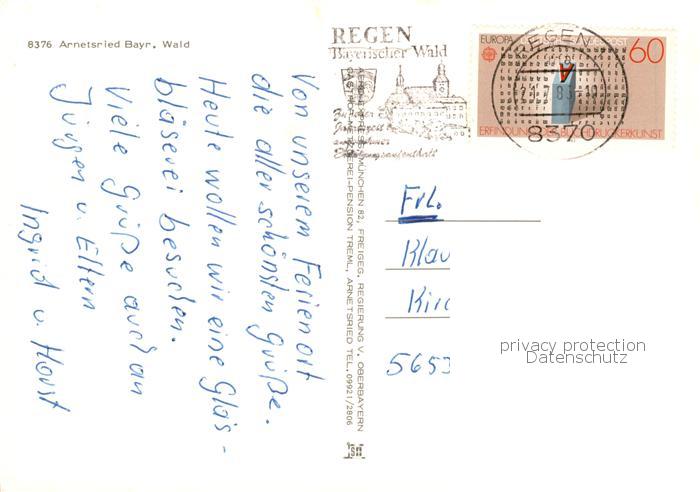 8376 Arnetsried Bayr. Wald
Von unserem Ferienort
die aller schönsten Grüße.
Heute wollen wir eine Glas-
bläserei besuchen.
Viele Grüße auch an
Jürgen u. Eltern
Ingrid u. Horst
REGEN
Bayerischer Wald
EUROPA
60
ERFINDUNG DES BUCHDRUCKERKUNST
A
REGEN
8370
MÜNCHEN 82, FREIGEG. REGIERUNG V. OBERBAYERN
PENSION TREML, ARNETSRIED TEL. 09921/2806
Frl.
Klau
Kirc
5653
privacy protection
Datenschutz